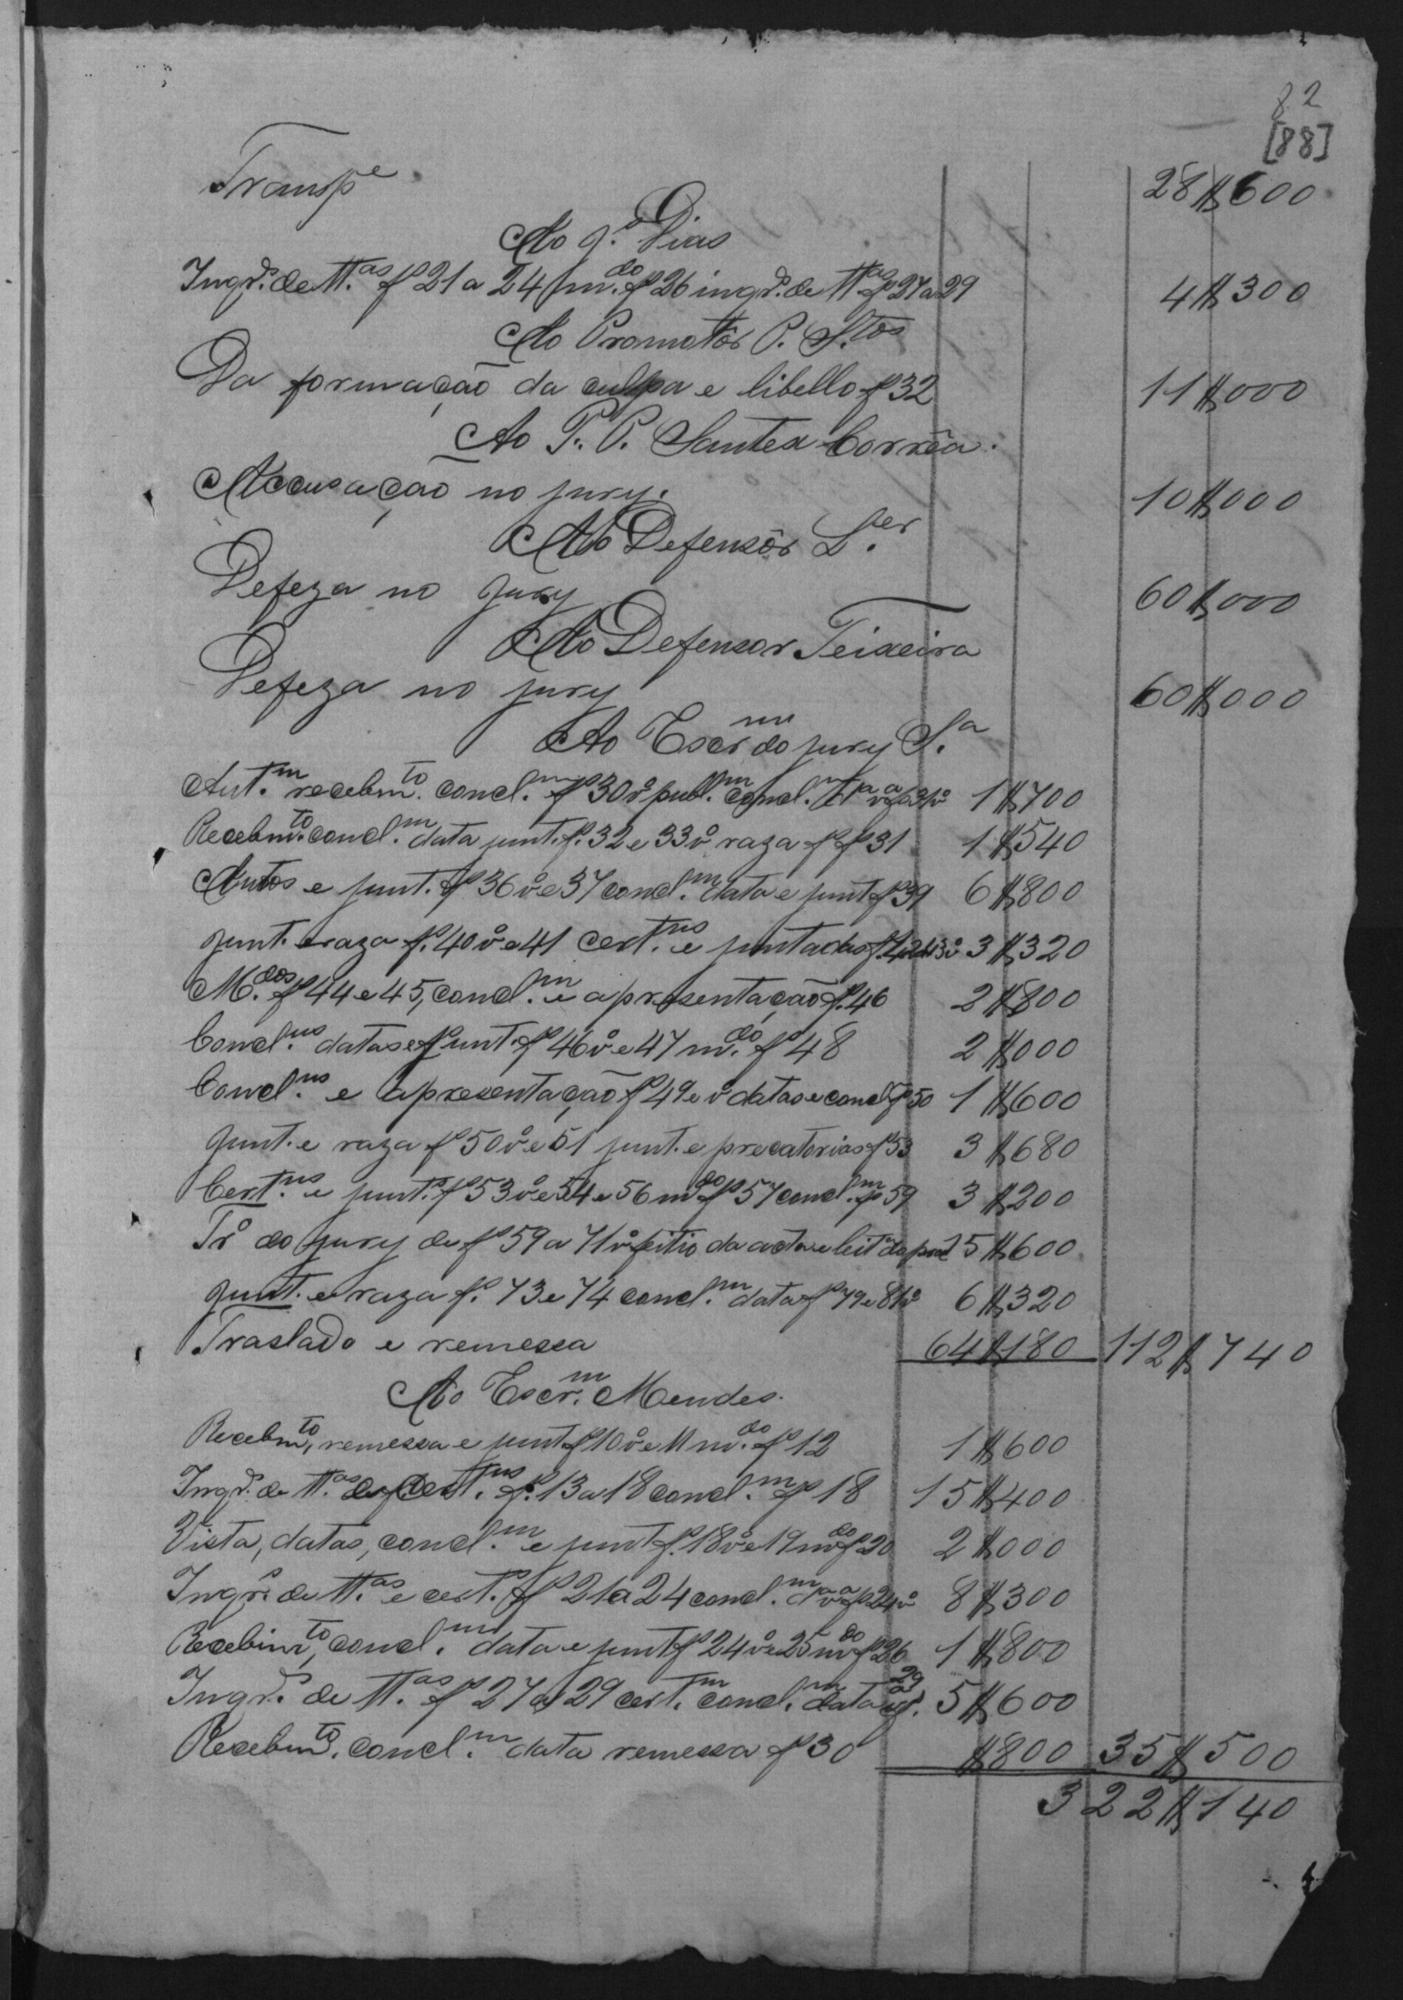 82
[88]
Transpe 28$600
Ao J.º Dias
Inqr.º de tt.as fs 21 a 24 m.do fs 26 inqr.º de tt.as fs 27 a 29 4$300
Ao Promotôr P. S.tos
Da formação da culpa e libello fs 32 11$000
Ao P. P. Santex Corrêa.
Accusação no jury. 10$000
Ao Defensôr L.er
Defeza no jury 60$000
Ao Defensor Teixeira
Defeza no jury 60$000
Ao Escr.m do jury S.a
Aut.m recebm.to concl.m fs 30vº publ.m concl.m 1$700
Recebm.to concl.m data junt. fs. 32 e 33vº raza fs fs 31 1$540
Autos e junt. fs 36vº e 37 concl.m data e junt. fs 39 6$800
Junt. e raza fs. 40vº e 41 cert.ns e juntadas fs. 42 e 43vº 3$320
M.dos fs 44 e 45, concl.m e apresentação fs. 46 2$800
Concl.ns datas e junt. fs 46vº e 47 m.do fs 48 2$000
Concl.ns e apresentação fs 49 e vº datas e concl. fs 50 1$600
Junt. e raza fs 50vº e 51 junt. e precatorias fs 53 3$680
Cert.ns e junt.s fs 53vº e 54 e 56 m.do fs 57 concl.m fs 59 3$200
Tr.º do jury de fs 59 a 71vº feitio da acta e leit. do proc. 15$600
Junt. e raza fs. 73 e 74 concl.m data fs 79 e 81vº 6$320
Traslado e remessa 64$180 112$740
Ao Escr.m Mendes.
Recebm.to, remessa e junt. fs 10vº e 11 m.do fs 12 1$600
Inqr.º de tt.as e cert.ns fs. 13 a 18 concl.m fs 18 15$400
Vista, datas, concl.m e junt. fs. 18vº e 19 m.do fs 20 2$000
Inqr.º de tt.as e cert.s fs 21 a 24 concl.m fs 24vº 8$300
Recebim.to, concl.m data e junt. fs 24vº e 25 m.do fs 26 1$800
Inqr.º de tt.as fs 27 a 29 cert.m concl.m data fs. 29 5$600
Recebm.to. concl.m data remessa fs 30 $800 35$500
322$140